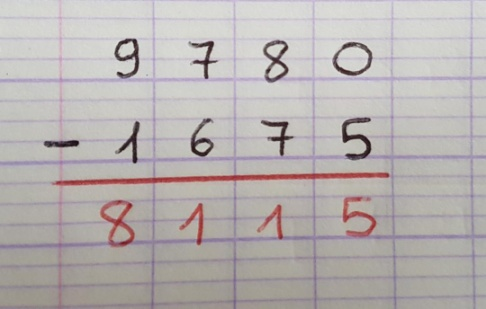 9 7 8 0
- 1 6 7 5
8 1 1 5